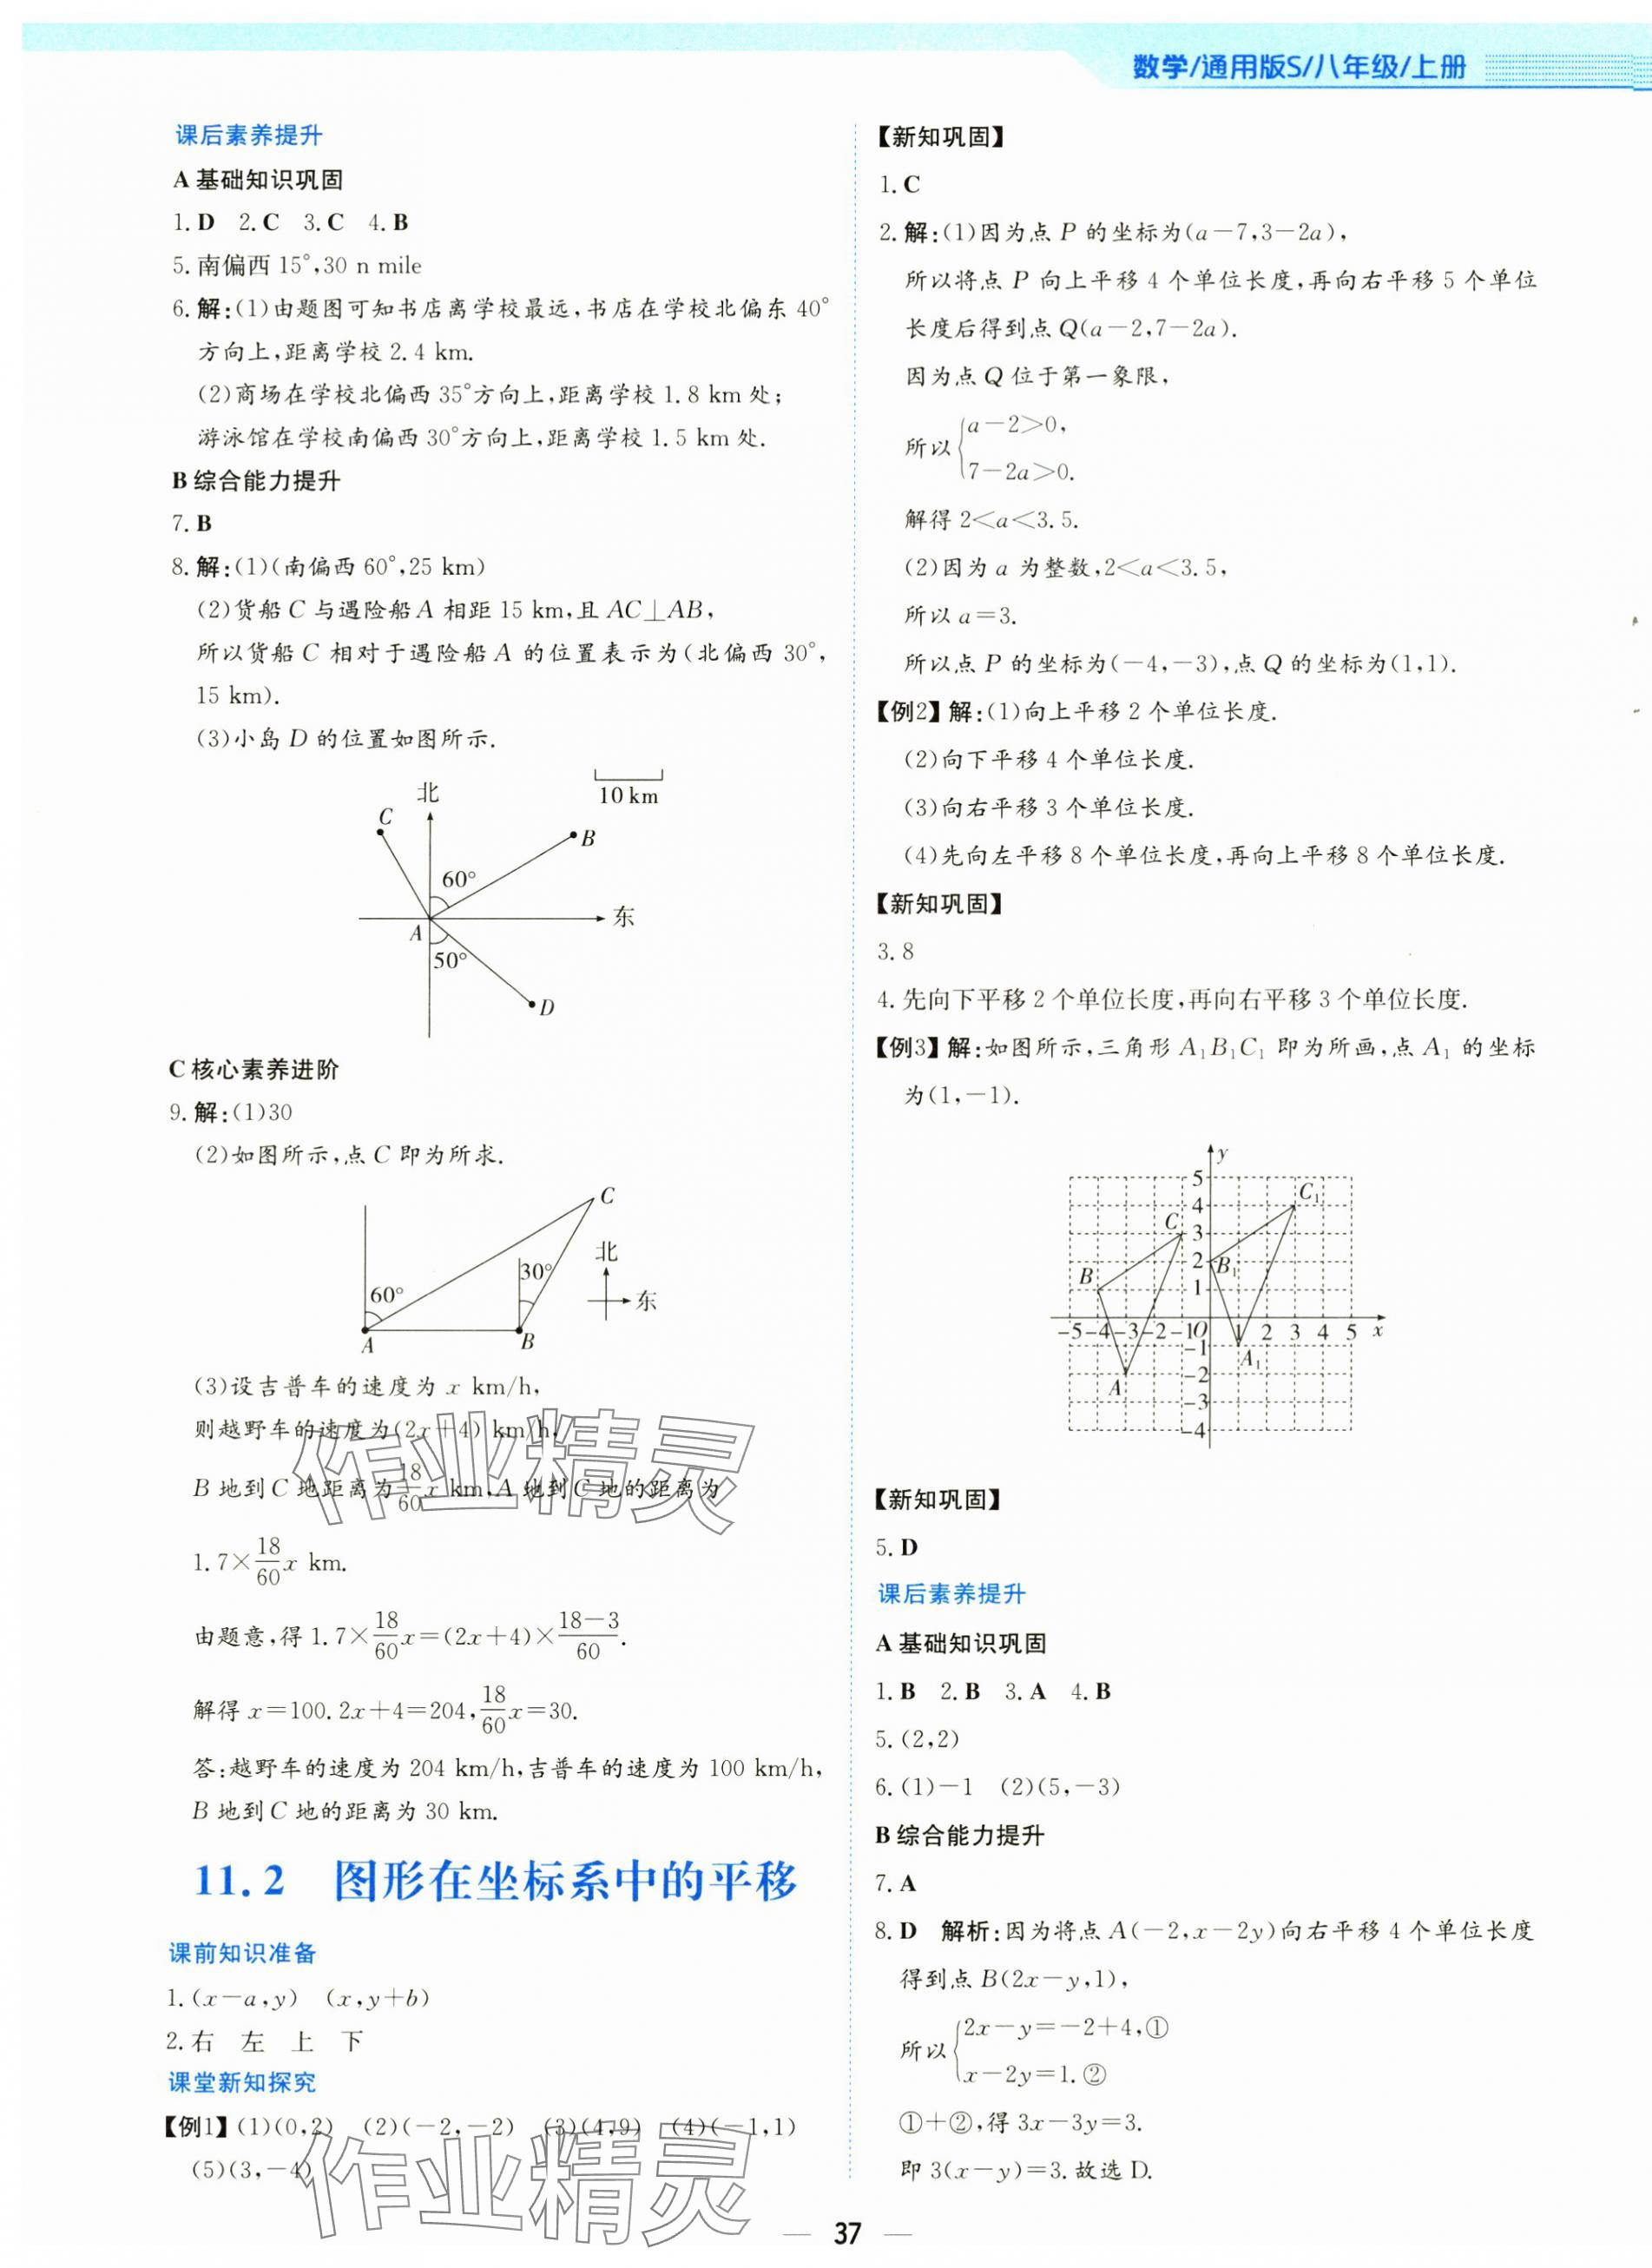 数学/通用版S/八年级/上册
课后素养提升
A 基础知识巩固
1. D 2. C 3. C 4. B
5. 南偏西 15°,30 n mile
6. 解:(1)由题图可知书店离学校最远,书店在学校北偏东 40°
方向上,距离学校 2.4 km.
(2)商场在学校北偏西 35°方向上,距离学校 1.8 km 处;
游泳馆在学校南偏西 30°方向上,距离学校 1.5 km 处.
B 综合能力提升
7. B
8. 解:(1)(南偏西 60°,25 km)
(2)货船 C 与遇险船 A 相距 15 km,且 AC⊥AB,
所以货船 C 相对于遇险船 A 的位置表示为(北偏西 30°,
15 km).
(3)小岛 D 的位置如图所示.
10 km
北
C
B
60°
东
A
50°
D
C 核心素养进阶
9. 解:(1)30
(2)如图所示,点 C 即为所求.
C
北
30°
60°
东
A
B
(3)设吉普车的速度为 x km/h,
则越野车的速度为(2x+4) km/h,
B 地到 C 地距离为 18/60 x km,A 地到 C 地的距离为
1.7×18/60 x km.
由题意,得 1.7×18/60 x=(2x+4)×(18-3)/60.
解得 x=100. 2x+4=204, 18/60 x=30.
答:越野车的速度为 204 km/h,吉普车的速度为 100 km/h,
B 地到 C 地的距离为 30 km.
11.2 图形在坐标系中的平移
课前知识准备
1. (x-a,y) (x,y+b)
2. 右 左 上 下
课堂新知探究
【例1】(1)(0,2) (2)(-2,-2) (3)(4,9) (4)(-1,1)
(5)(3,-4)
【新知巩固】
1. C
2. 解:(1)因为点 P 的坐标为(a-7,3-2a),
所以将点 P 向上平移 4 个单位长度,再向右平移 5 个单位
长度后得到点 Q(a-2,7-2a).
因为点 Q 位于第一象限,
所以 { a-2>0,
7-2a>0.
解得 2<a<3.5.
(2)因为 a 为整数,2<a<3.5,
所以 a=3.
所以点 P 的坐标为(-4,-3),点 Q 的坐标为(1,1).
【例2】解:(1)向上平移 2 个单位长度.
(2)向下平移 4 个单位长度.
(3)向右平移 3 个单位长度.
(4)先向左平移 8 个单位长度,再向上平移 8 个单位长度.
【新知巩固】
3. 8
4. 先向下平移 2 个单位长度,再向右平移 3 个单位长度.
【例3】解:如图所示,三角形 A₁B₁C₁ 即为所画,点 A₁ 的坐标
为(1,-1).
y
5
C₁
4
C
3
2
B₁
B
1
-5 -4 -3 -2 -1 O 1 2 3 4 5 x
-1
A₁
-2
A
-3
-4
【新知巩固】
5. D
课后素养提升
A 基础知识巩固
1. B 2. B 3. A 4. B
5. (2,2)
6. (1)-1 (2)(5,-3)
B 综合能力提升
7. A
8. D 解析:因为将点 A(-2,x-2y)向右平移 4 个单位长度
得到点 B(2x-y,1),
所以 { 2x-y=-2+4,①
x-2y=1.②
①+②,得 3x-3y=3.
即 3(x-y)=3.故选 D.
作业精灵
作业精灵
37